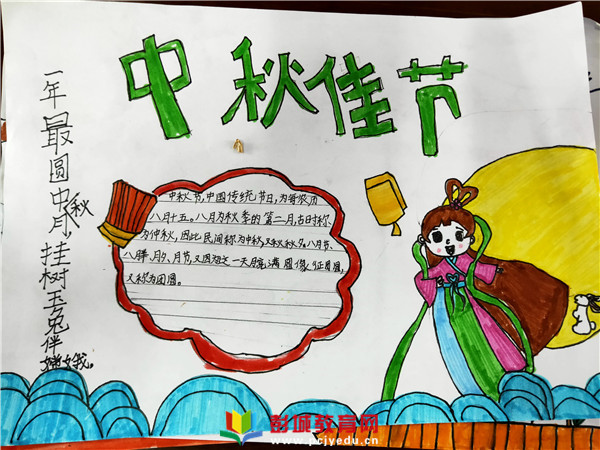 中秋佳节
一年最圆中秋月,挂树玉兔伴嫦娥。
中秋节,中国传统节日,为每农历
八月十五。八月为秋季的第二月,古时称
为仲秋,因此民间称为中秋,又称秋夕,八月节,
八月半,月夕,月节,又因为这一天月亮满圆像征团圆,
又称为团圆。
彭城教育网
www.pcjyedu.cn